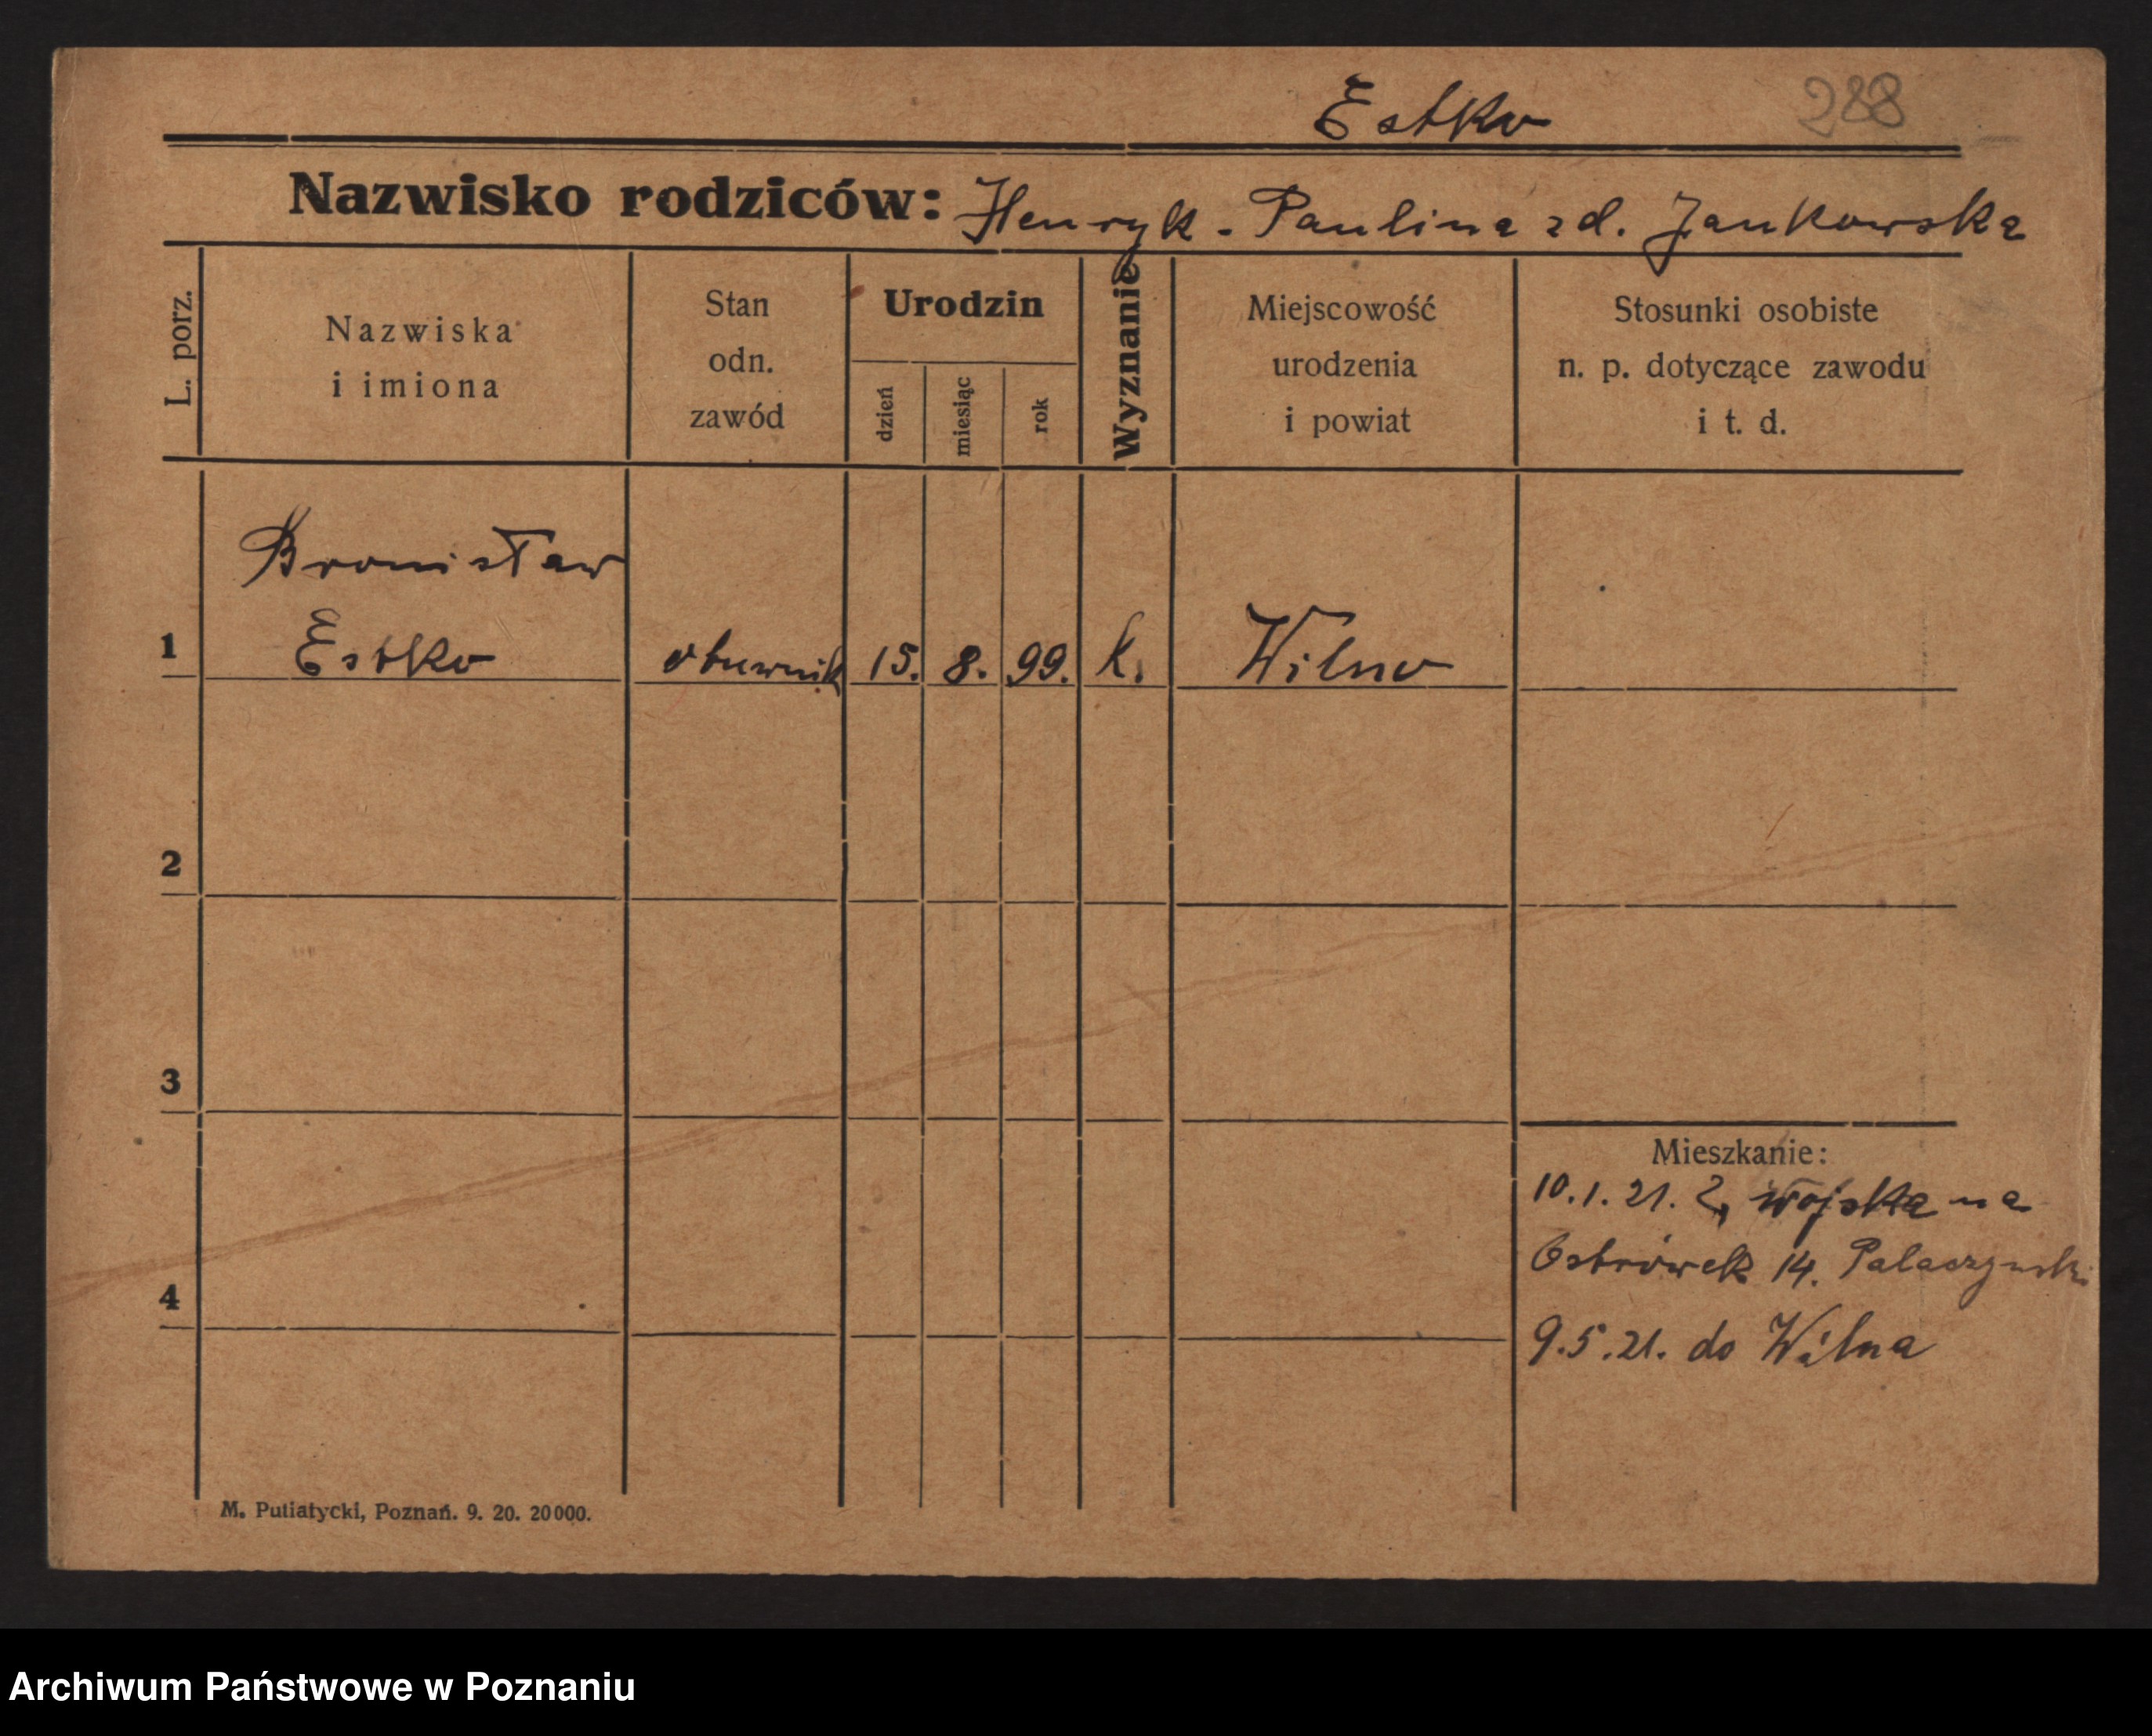 Estko
288
Nazwisko rodziców: Henryk - Paulina zd. Jankowska
L. porz.
Nazwiska
i imiona
Stan
odn.
zawód
Urodzin
dzień
miesiąc
rok
Wyznanie
Miejscowość
urodzenia
i powiat
Stosunki osobiste
n. p. dotyczące zawodu
i t. d.
Bronisław
1 Estko obuwnik 15. 8. 99. k. Wilno
2
3
Mieszkanie:
10.1.21. z wojska na
Ostrówek 14. Palaczynski
4
9.5.21. do Wilna
M. Putiatycki, Poznań. 9. 20. 20000.
Archiwum Państwowe w Poznaniu